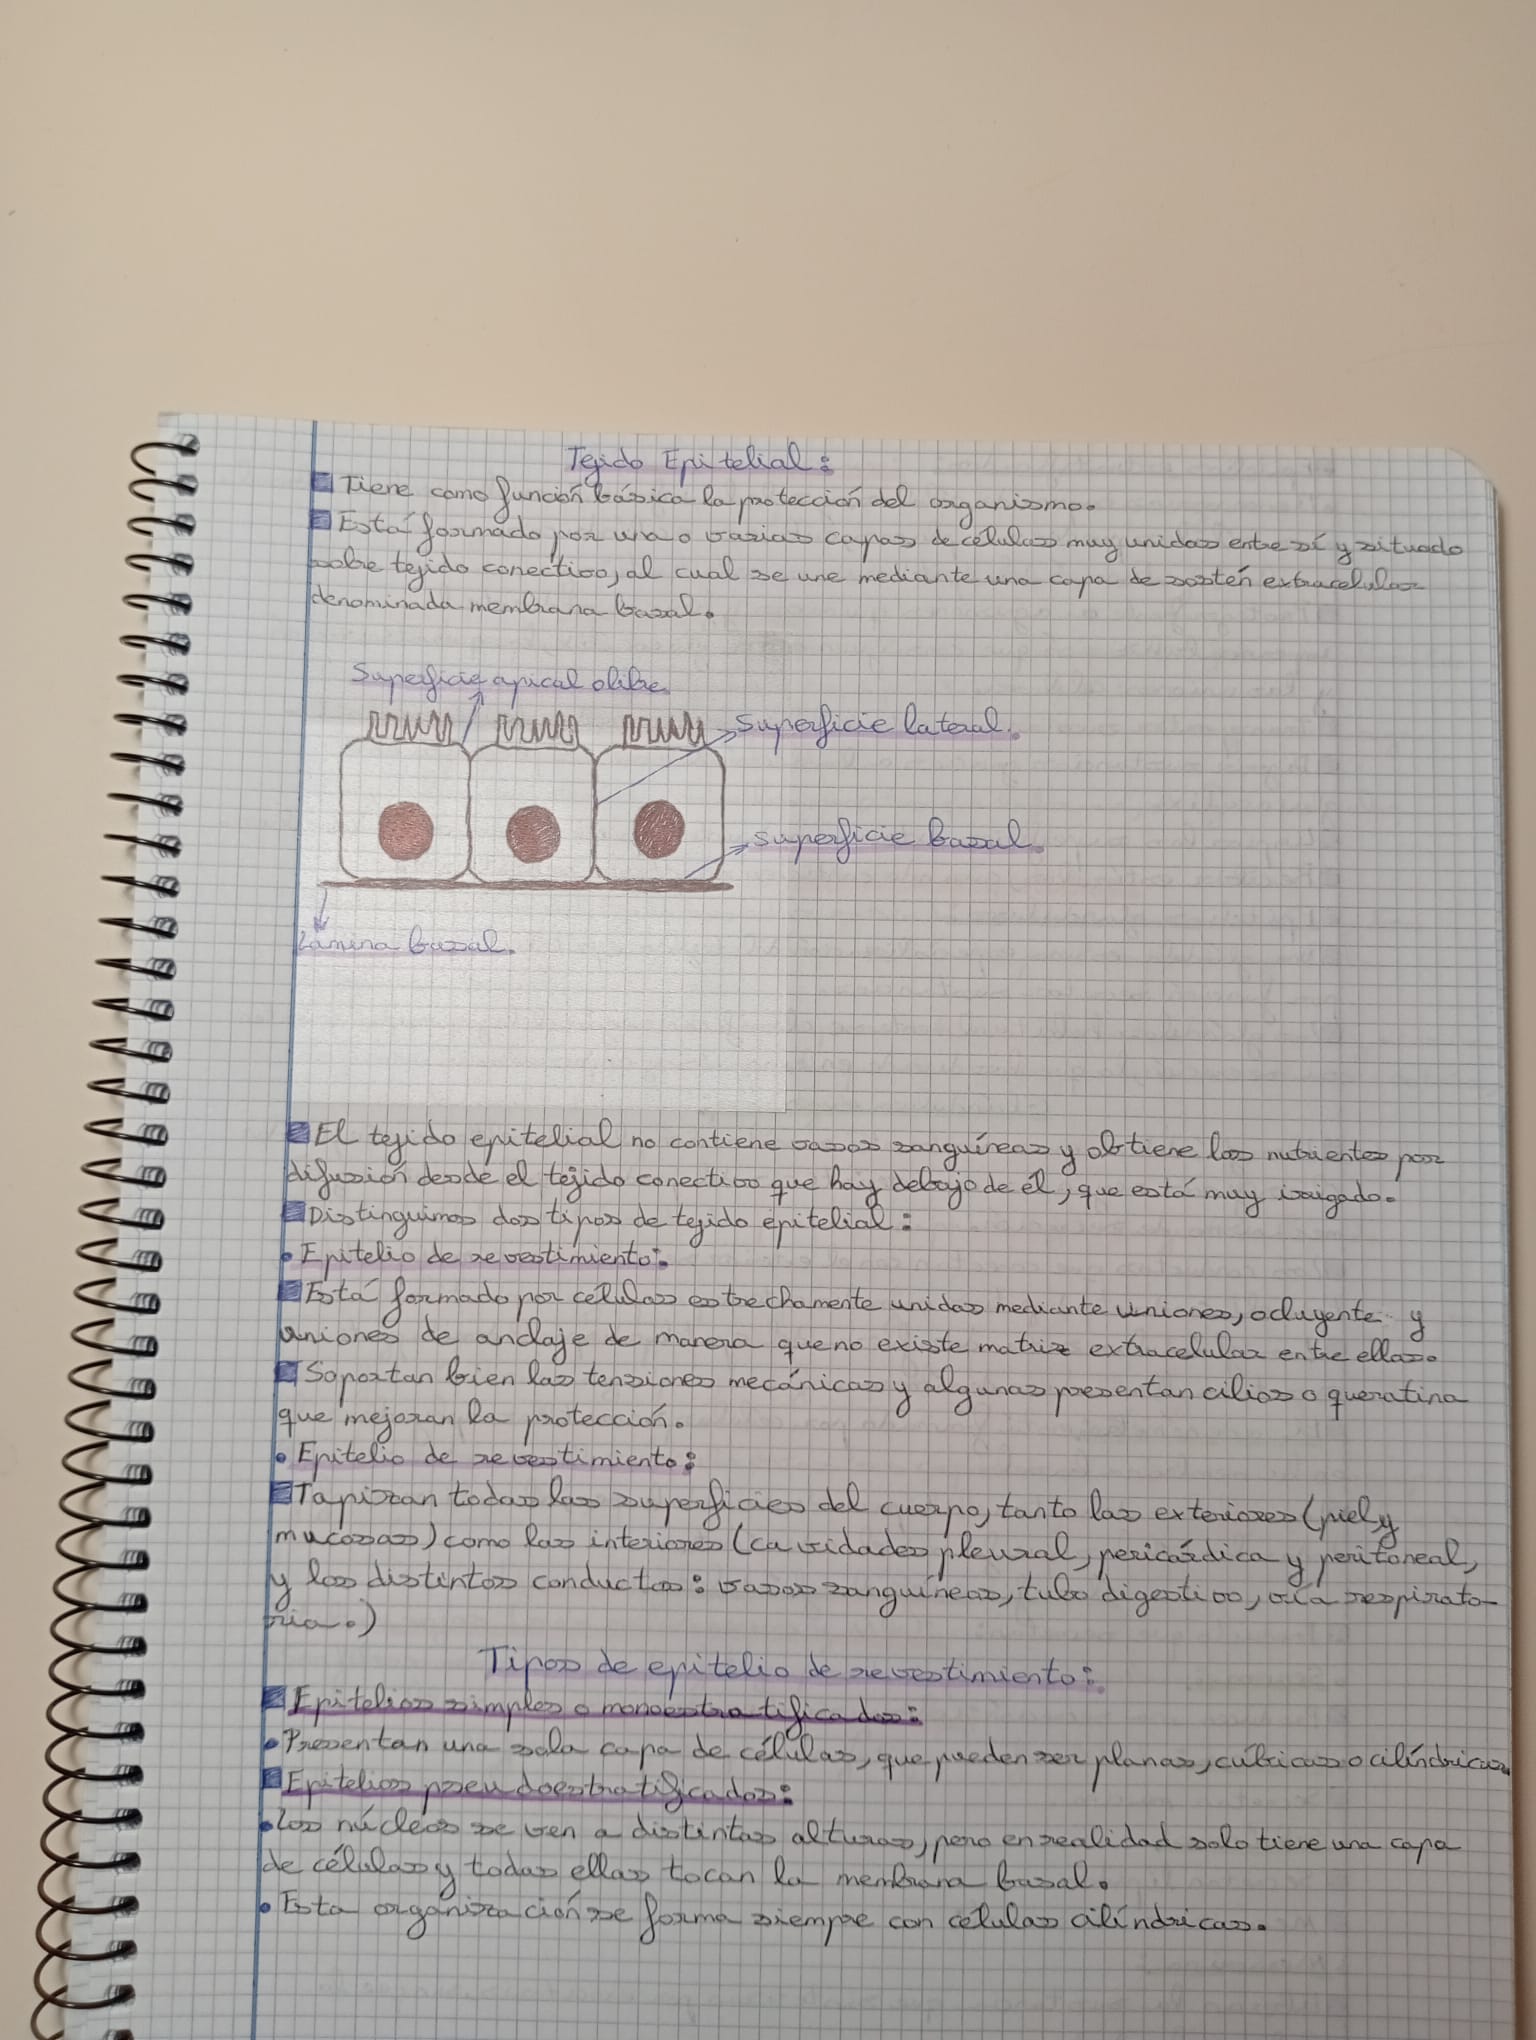 Tejido Epitelial:
Tiene como función básica la protección del organismo.
Está formado por una o varias capas de células muy unidas entre sí y situado
sobre tejido conectivo, al cual se une mediante una capa de sostén extracelular
denominada membrana basal.
Superficie apical o libre.
Superficie lateral.
superficie basal.
Lámina basal.
El tejido epitelial no contiene vasos sanguíneas y obtiene los nutrientes por
difusión desde el tejido conectivo que hay debajo de él, que está muy irrigado.
Distinguimos dos tipos de tejido epitelial:
• Epitelio de revestimiento:
Está formado por células estrechamente unidas mediante uniones, ocluyente y
uniones de anclaje de manera que no existe matriz extracelular entre ellas.
Soportan bien las tensiones mecánicas y algunas presentan cilios o queratina
que mejoran la protección.
• Epitelio de revestimiento:
Tapizan todas las superficies del cuerpo, tanto las exteriores (piel y
mucosas) como las interiores (cavidades pleural, pericárdica y peritoneal,
y los distintos conductos: vasos sanguíneos, tubo digestivo, vía respirato-
ria.)
Tipos de epitelio de revestimiento:
Epitelios simples o monoestratificados:
• Presentan una sola capa de células, que pueden ser planas, cúbicas o cilíndricas.
Epitelios pseudoestratificados:
• Los núcleos se ven a distintas alturas, pero en realidad solo tiene una capa
de células y todas ellas tocan la membrana basal.
• Esta organización se forma siempre con células cilíndricas.